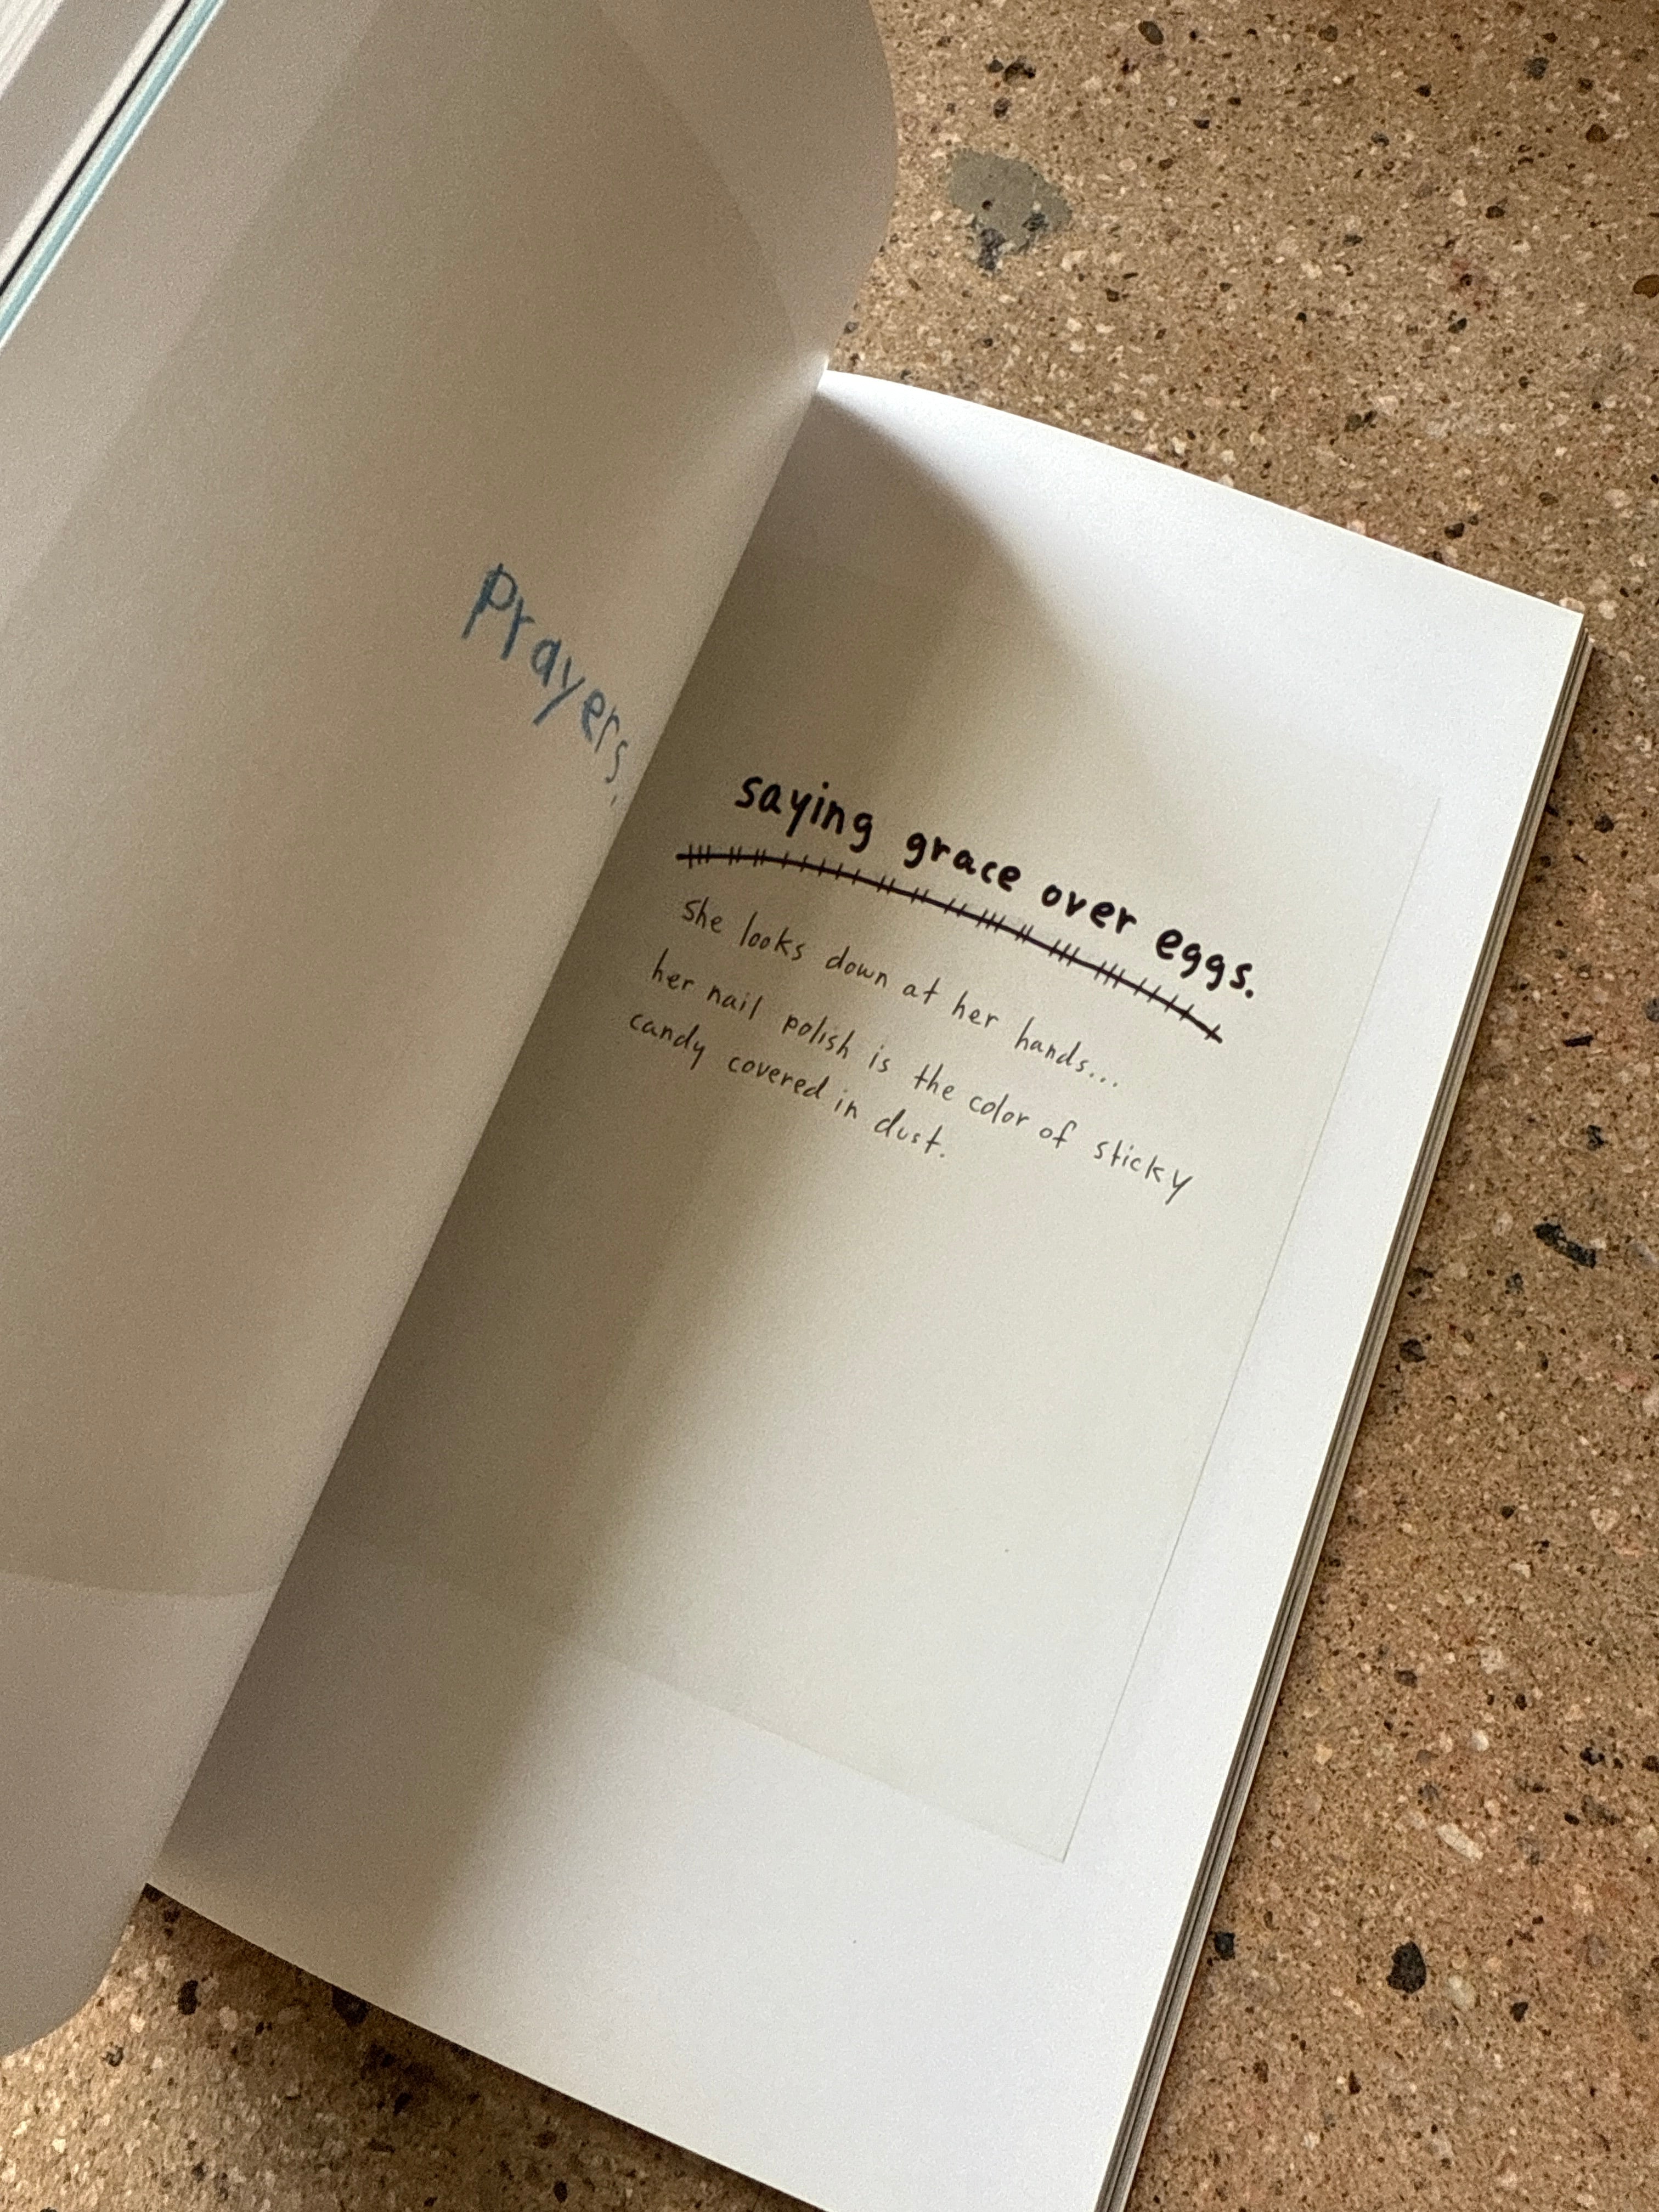 Prayers,
saying grace over eggs.
she looks down at her hands...
her nail polish is the color of sticky
candy covered in dust.